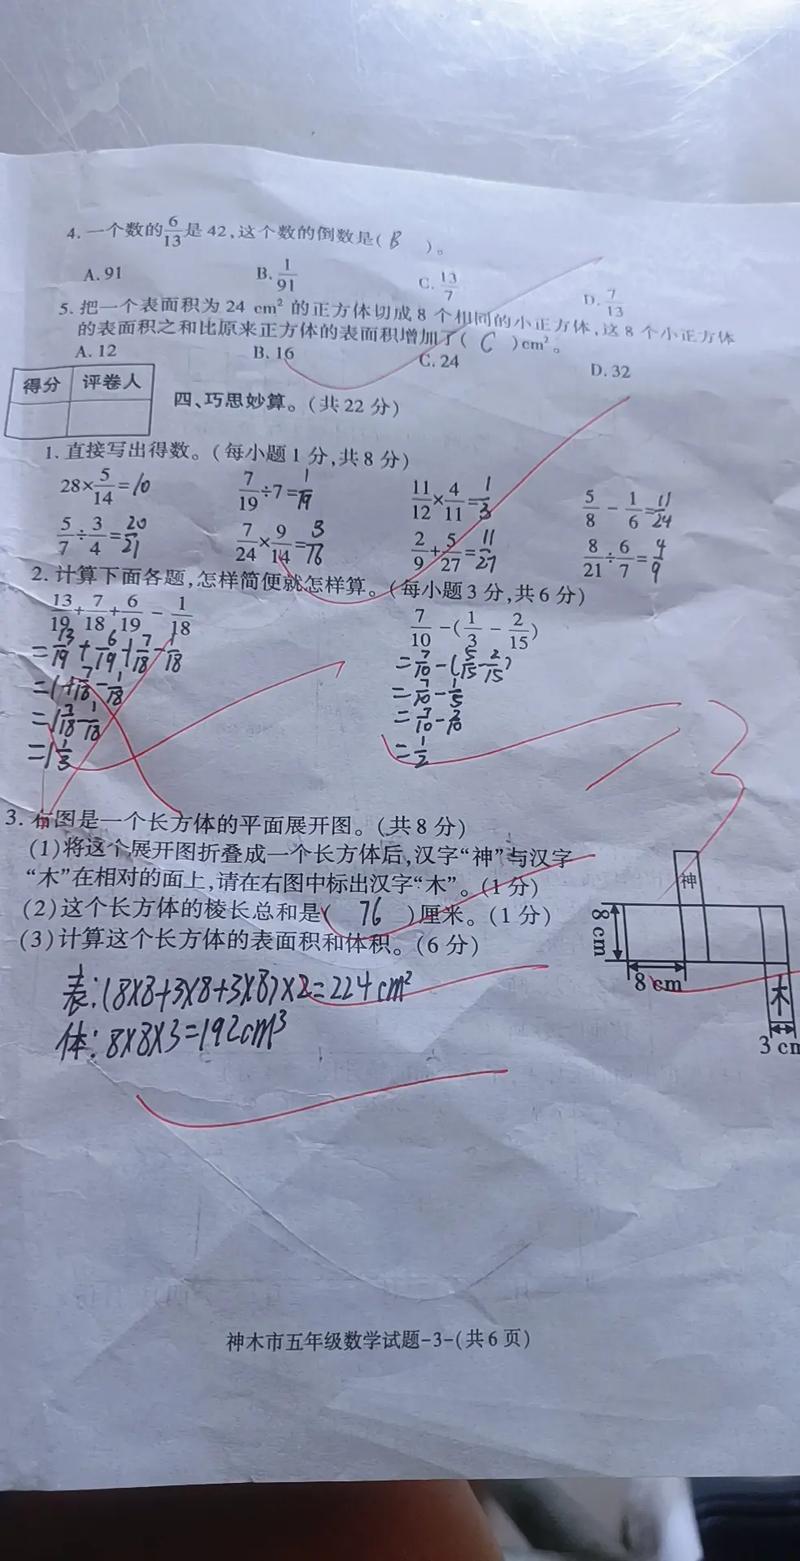 4. 一个数的6/13是 42,这个数的倒数是( B )。
A. 91 B. 1/91 C. 13/7 D. 7/13
5. 把一个表面积为 24 cm² 的正方体切成 8 个相同的小正方体,这 8 个小正方体
的表面积之和比原来正方体的表面积增加了( C )cm²。
A. 12 B. 16 C. 24 D. 32
得分 评卷人
四、巧思妙算。(共 22 分)
1. 直接写出得数。(每小题 1 分,共 8 分)
28×5/14=10 7/19÷7=1/19 11/12×4/11=1/3 5/8-1/6=11/24
5/7÷3/4=20/21 7/24×9/14=3/16 2/9+5/27=11/27 8/21÷6/7=4/9
2. 计算下面各题,怎样简便就怎样算。(每小题 3 分,共 6 分)
13/19+7/18+6/19-1/18 7/10-(1/3-2/15)
=13/19+6/19+7/18-1/18 =7/10-(5/15-2/15)
=1+7/18-1/18 =7/10-1/5
=1 7/18-1/18 =7/10-2/10
=1 1/3 =1/2
3
3. 右图是一个长方体的平面展开图。(共 8 分)
(1)将这个展开图折叠成一个长方体后,汉字“神”与汉字
“木”在相对的面上,请在右图中标出汉字“木”。(1 分)
(2)这个长方体的棱长总和是( 76 )厘米。(1 分)
(3)计算这个长方体的表面积和体积。(6 分)
神
8 cm
8 cm
木
3 cm
表:(8×8+3×8+3×8)×2=224cm²
体:8×8×3=192cm³
神木市五年级数学试题-3-(共 6 页)